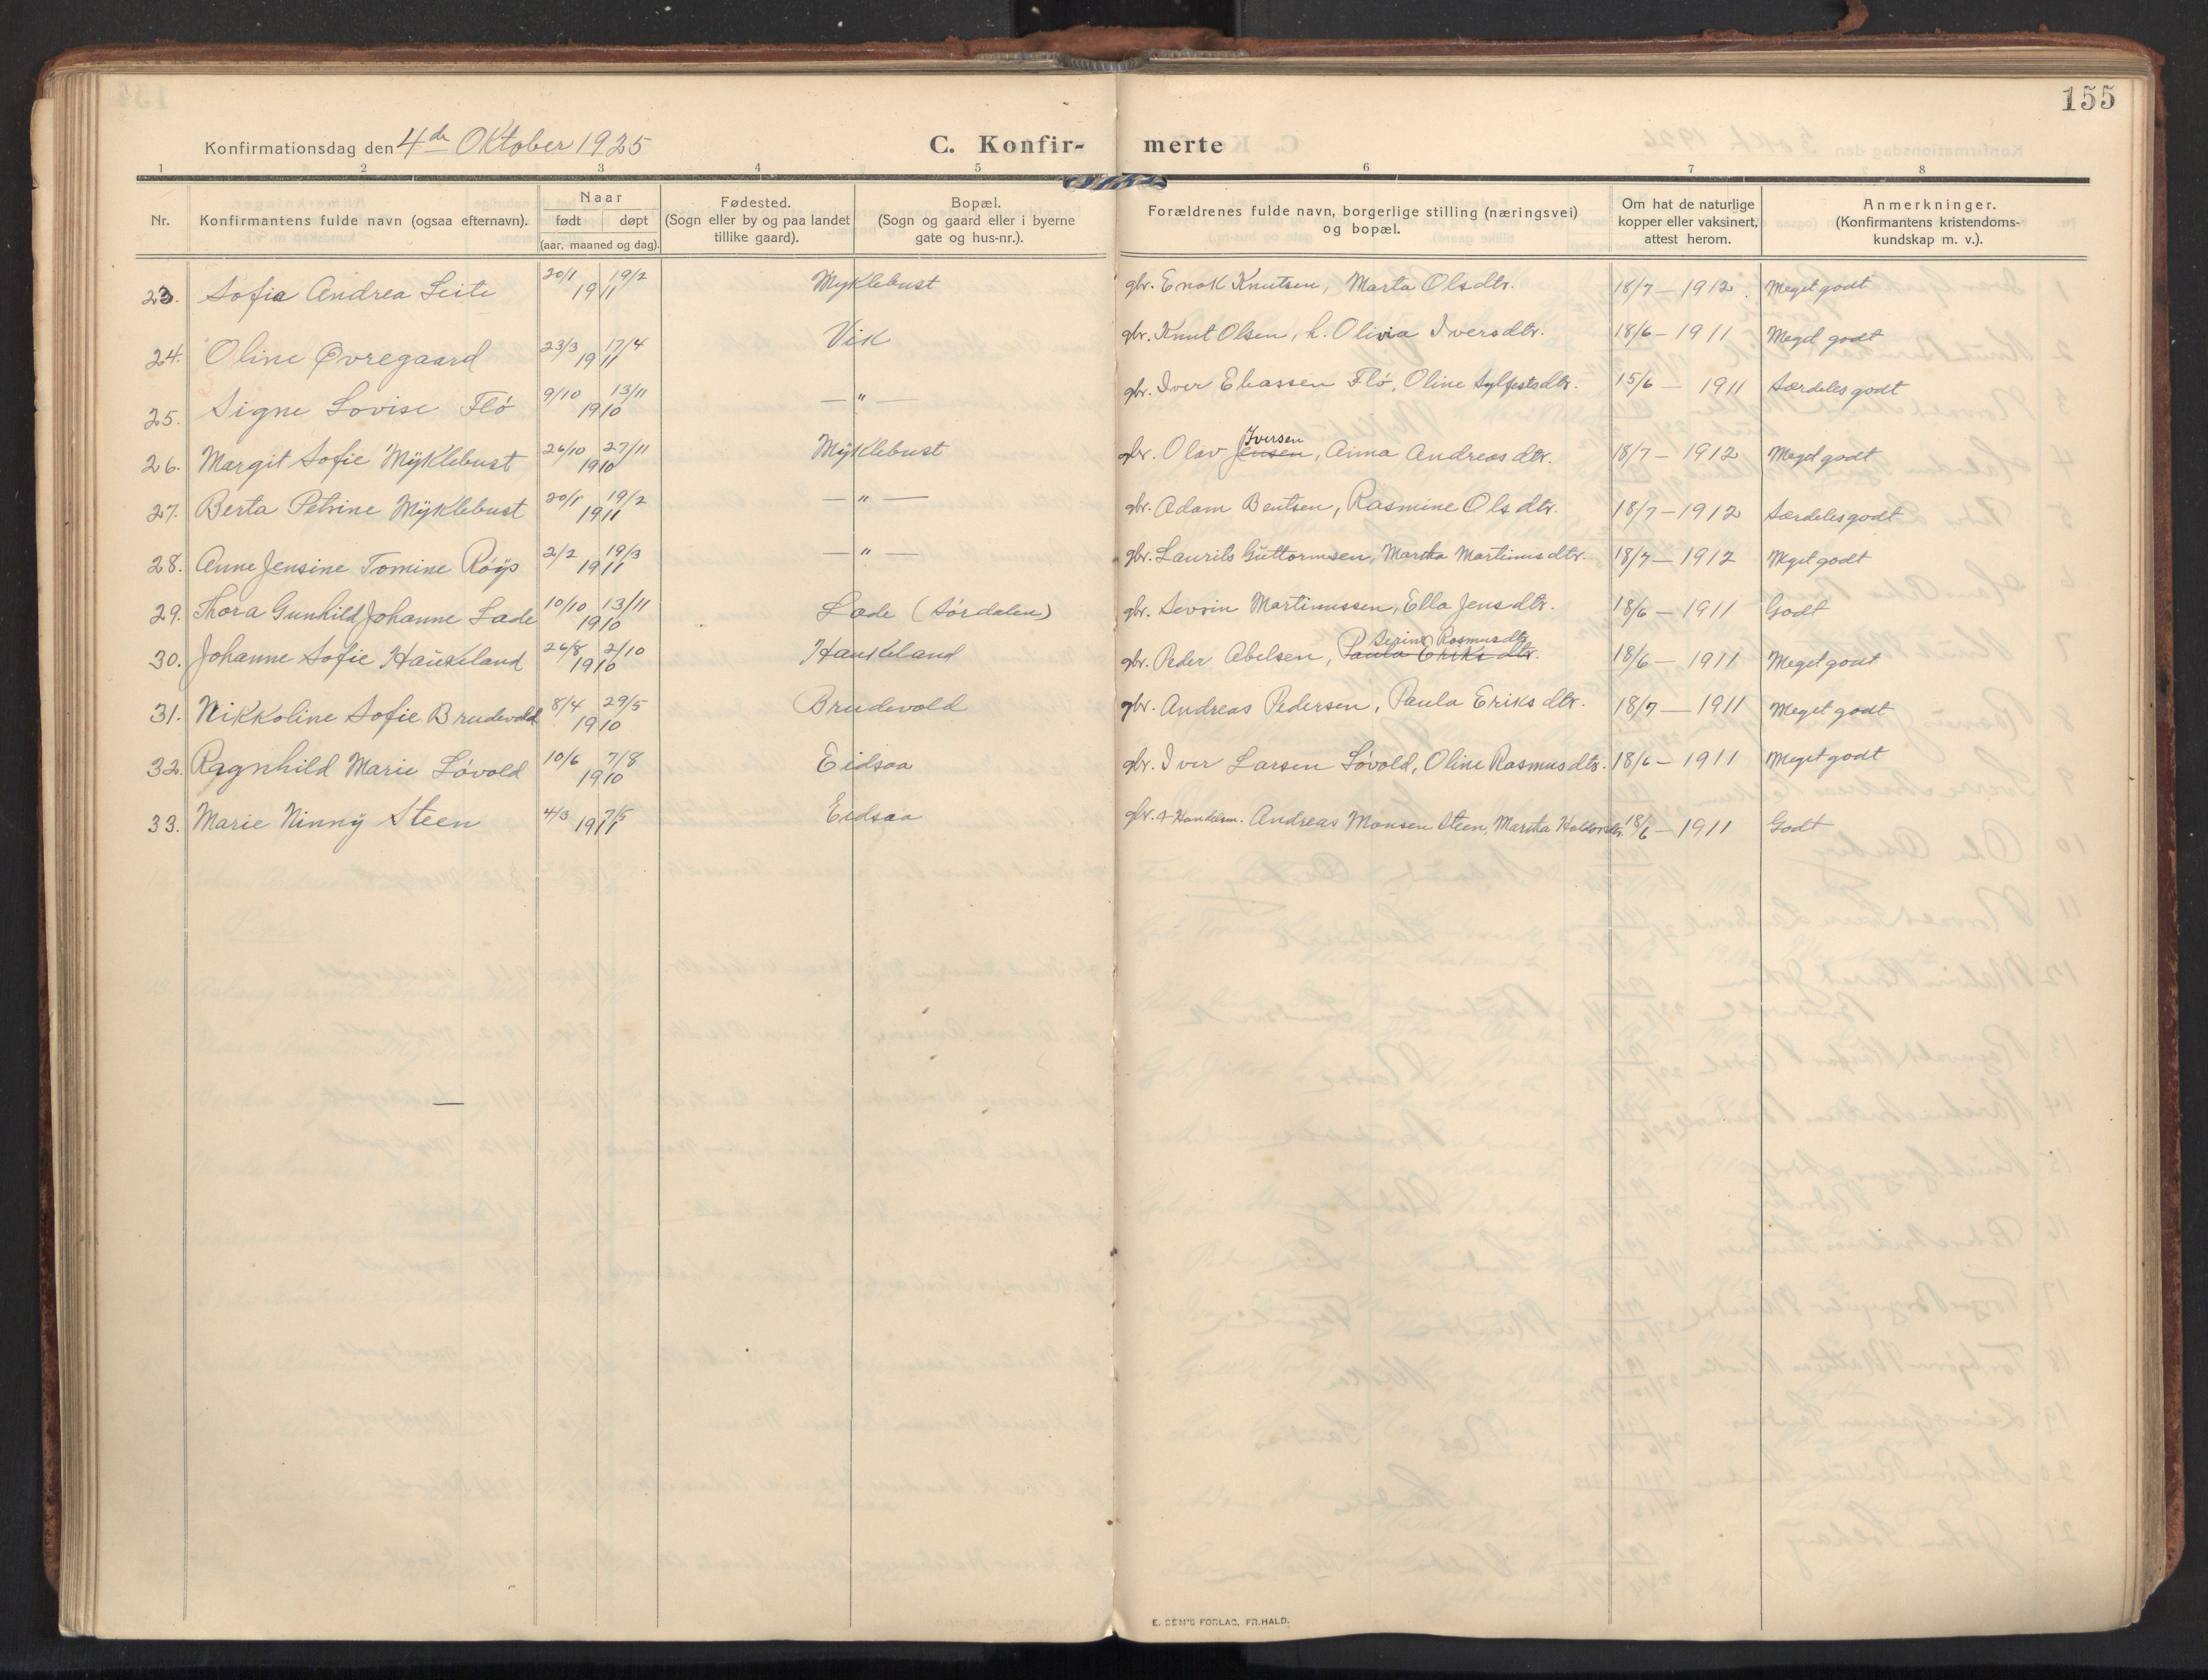 155
Konfirmationsdag den 4de Oktober 1925
C. Konfir- merte
1 2 3 4 5 6 7 8
Nr.
Konfirmantens fulde navn (ogsaa efternavn).
Naar
født døpt
(aar, maaned og dag).
Fødested.
(Sogn eller by og paa landet
tillike gaard).
Bopæl.
(Sogn og gaard eller i byerne
gate og hus-nr.).
Forældrenes fulde navn, borgerlige stilling (næringsvei)
og bopæl.
Om hat de naturlige
kopper eller vaksinert,
attest herom.
Anmerkninger.
(Konfirmantens kristendoms-
kundskap m. v.).
23. Sofia Andrea Leite 20/1 19/2 1911 Myklebust gbr. Enok Knutsen, Marta Olsdtr. 18/7 - 1912 Meget godt
24. Oline Øvregaard 23/3 17/4 1911 Vik gbr. Knut Olsen, h. Olivia Iversdtr. 18/6 - 1911 Meget godt
25. Signe Lovise Flö 9/10 13/11 1910 — " — gbr. Iver Eliassen Flö, Oline Sylfestsdtr. 15/6 - 1911 Særdeles godt
26. Margit Sofie Myklebust 26/10 27/11 1910 Myklebust gbr. Olav Jensen Iversen, Anna Andreasdtr. 18/7 - 1912 Meget godt
27. Berta Petrine Myklebust 20/1 19/2 1911 — " — gbr. Adam Bentsen, Rasmine Olsdtr. 18/7 - 1912 Særdeles godt
28. Anne Jensine Tomine Röys 2/2 19/3 1911 — " — gbr. Laurits Guttormsen, Martha Martinusdtr. 18/7 - 1912 Meget godt
29. Thora Gunhild Johanne Lade 10/10 13/11 1910 Lade (Sördalen) gbr. Sevrin Martinussen, Ella Jensdtr. 18/6 - 1911 Godt
30. Johanne Sofie Haukeland 26/8 2/10 1910 Haukeland gbr. Peder Abelsen, Paula Eriksdtr. Serine Rasmusdtr. 18/6 - 1911 Meget godt
31. Nikkoline Sofie Brudevold 8/4 29/5 1910 Brudevold gbr. Andreas Pedersen, Paula Eriksdtr. 18/7 - 1911 Meget godt
32. Ragnhild Marie Lövold 10/6 7/8 1910 Eidsaa gbr. Iver Larsen Lövold, Oline Rasmusdtr. 18/6 - 1911 Meget godt
33. Marie Ninny Steen 4/3 7/5 1911 Eidsaa gbr. + Handelsm. Andreas Monsen Steen, Martha 18/6 - 1911 Godt
E. SEM'S FORLAG, FR.HALD.